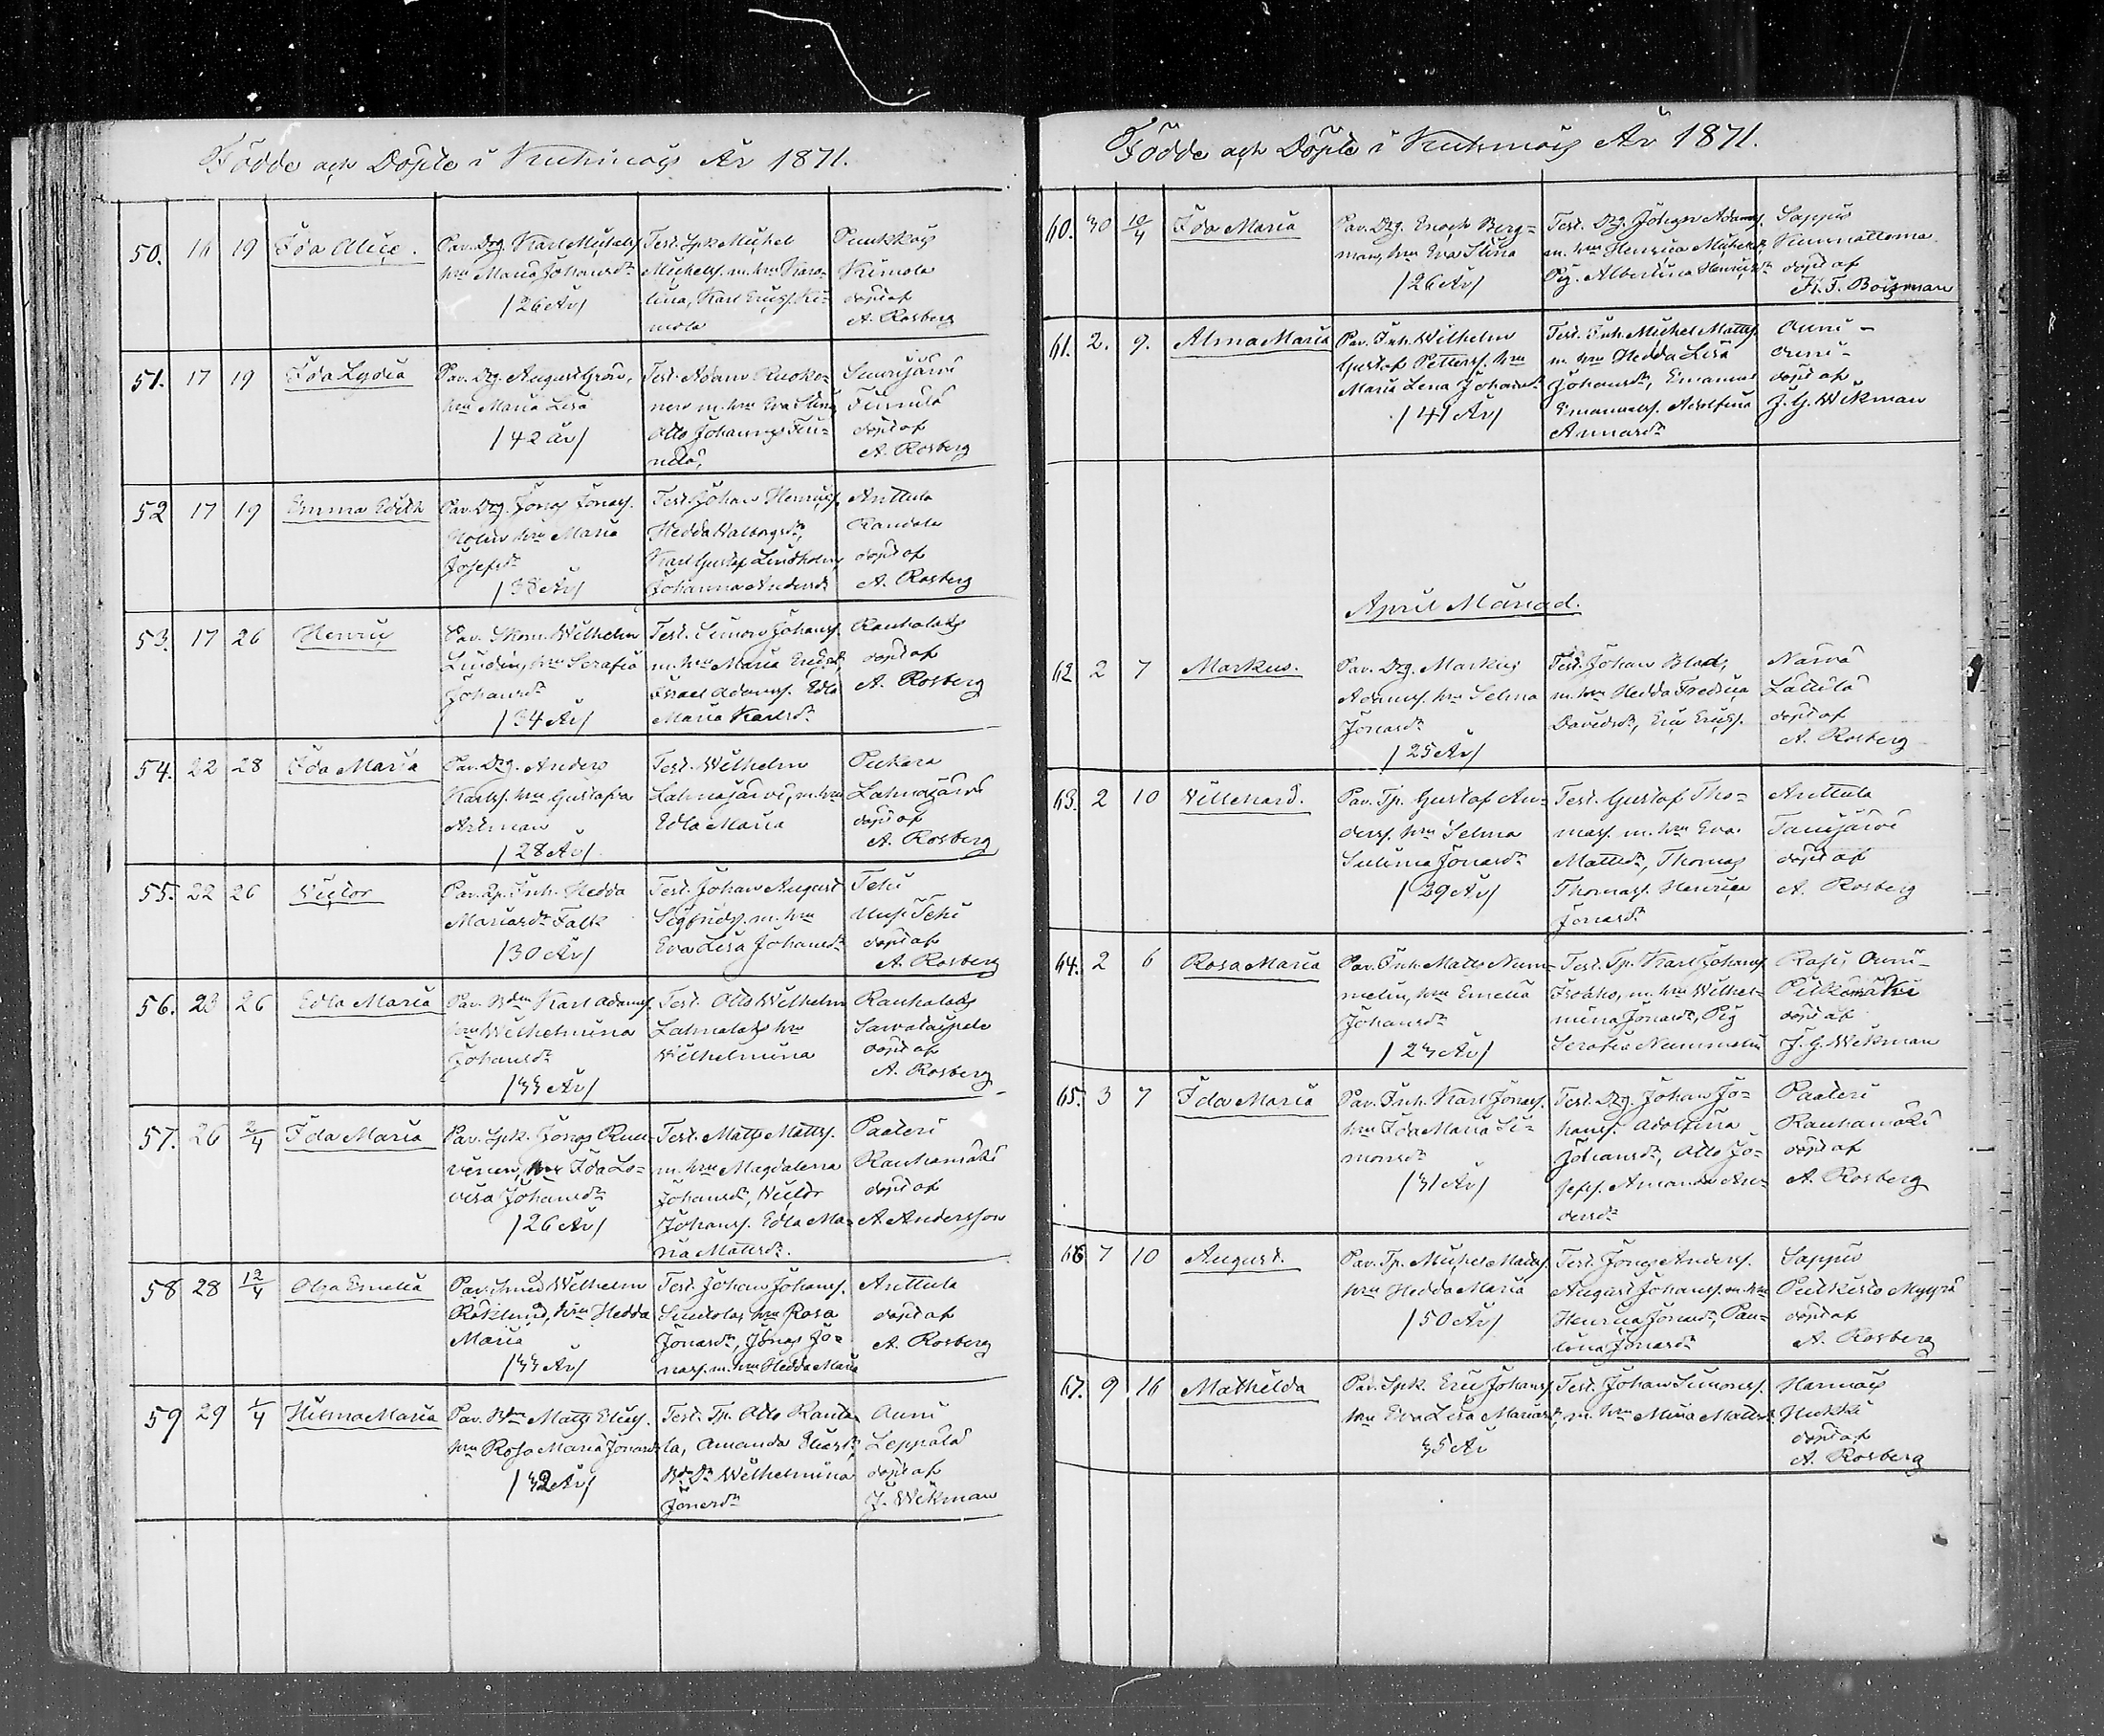 Födde och Döpte i Kuhmois År 1871.
50. 16 19 Ida Alice.
Par. Drg. Karl Michelss.
hm Maria Johansdr
/26 År/
Test. Spk Michel
Michelss. m. hm Karo-
lina, Karl Ericss. Ki-
mola
Puukkois
Kimola
döpt af
A. Rosberg
51. 17 19 Ida Lydia
Par. Drg. August Grön,
hm Maria Lisa
/42 år/
Test. Adam Ruoko-
nen m. hm Eva Stina
Otto Johanss
nola,
döpt af
A. Rosberg
52 17 19 Emma Edith
Par. Drg. Jonas Jonass.
Holm hm Maria
Josefsdr
/38 År/
Test. Johan Henricss.
Hedda Walborgsdr,
Karl Gustaf Lindholm,
Johanna Andersdr
Anttula
Kandola
döpt af
A. Rosberg
53. 17 26 Henric
Par. Skom. Wilhelm
Lindin, hm Serafia
Johansdr
/34 År/
Test. Simon Johanss.
m. hm Maria Ericsdr,
Israel Adamss. Edla
Maria Karlsdr
Rauhalaks
döpt af
A. Rosberg
54. 22 28 Ida Maria
Par. Drg. Anders
Karlss. hm Gustafva
Artman
/28 År/
Test. Wilhelm
Lahnajärvi, m. hm
Edla Maria
Pihkara
Lahnajärvi
döpt af
A. Rosberg
55. 22 26 Victor
Par. Inh. Hedda
Mariasdr Falk
/30 År/
Test. Johan August
Sigfridss. m. hm
Eva Lisa Johansdr
Tehi
Tehi
döpt af
A. Rosberg
56. 23 26 Edla Maria
Par. Bdm Karl Adamss.
hm Wilhelmina
Johansdr
/33 År/
Test. Otto Wilhelm
Lahnalaks hm
Wilhelmina
Rauhalaks
döpt af
A. Rosberg
57. 26 2/4 Ida Maria
Par. Spk. Jonas Ruu-
vinen, hm Ida Lo-
visa Johansdr
/26 År/
Test. Matts Mattss.
m. hm Magdalena
Johansdr, Victor
Johanss. Edla Ma-
ria Mattsdr.
Paateri
Rauhamäki
döpt af
A. Andersson
58 28 12/4 Olga Emelia
Par. Smed Wilhelm
Röklund, hm Hedda
Maria
/33 År/
Test. Johan Johanss.
hm Rosa
Jonasdr, Jonas Jo-
nass. m. hm Hedda Maria
Anttula
döpt af
A. Rosberg
59 29 1/4 Hilma Maria
Par. Bdm Matts Eliass.
hm Rosa Maria Jonasdr
/32 År/
Test. Tp. Otto Ranta-
la, Amanda Eliasdr,
Bd. Dr Wilhelmina
Jonasdr
Auni
Leppälä
döpt af
J. Wikman
Födde och Döpte i Kuhmois År 1871.
60. 30 10/4 Ida Maria
Par. Drg. Enoch Berg-
man, hm Eva Stina
/26 År/
Test. Drg. Johan Adamss.
m. hm Henrica Michelsdr,
Pig. Albertina Henricsdr
Sappio
Kummattoma
döpt af
K. F. Boisman
61. 2. 9. Alma Maria
Par. Inh. Wilhelm
Gustaf Petterss. hm
Maria Lena Johansdr
/41 År/
Test. Inh. Michel Mattss.
m. hm Hedda Lisa
Johansdr, Emanuel
Emanuelss. Adolfina
Annasdr
Auni-
Auni-
döpt af
J. G. Wikman
April Månad.
62 2 7 Markus.
Par. Drg. Markus
Adamss. hm Selma
Jonasdr
/25 År/
Test. Johan Blad,
m. hm Hedda Fredrica
Davidsdr, Eric Ericss.
Närvä
Lättilä
döpt af
A. Rosberg
63. 2 10 Willehard.
Par. Tp. Gustaf An-
derss. hm Selma
Sulima Jonasdr
/29 År/
Test. Gustaf Tho-
mass. m. hm Eva
Mattsdr, Thomas
Thomass. Henrica
Jonasdr
Anttula
Tanijärvi
döpt af
A. Rosberg
64. 2 6 Rosa Maria
Par. Inh. Matts Num-
melin, hm Emelia
Johansdr
/23 År/
Test. Tp. Karl Johanss.
Isoaho, m. hm Wilhel-
mina Jonasdr, Pig
Serafia Nummelin
Auni-
Pitkämäki
döpt af
J. G. Wikman
65. 3 7 Ida Maria
Par. Inh. Karl Jonass.
hm Ida Maria Si-
monsdr
/31 År/
Test. Drg. Johan Jo-
hanss. Adolfina
Johansdr, Otto Jo-
sefss. Amanda An-
dersdr
Paateri
Rauhamäki
döpt af
A. Rosberg
66 7 10 August.
Par. Tp. Michel Mattss.
hm Hedda Maria
/50 År/
Test. Jonas Anderss.
August Johanss. m. hm
Henrica Jonasdr, Pau-
lina Jonasdr
Sappio
Pitkisto Mäyrä
döpt af
A. Rosberg
67. 9 16 Mathilda
Par. Spk. Eric Johanss.
hm Eva Lisa Mariasdr,
35 År
Test. Johan Simonss.
m. hm Mina Mattsdr
Harmois
Hukki
döpt af
A. Rosberg